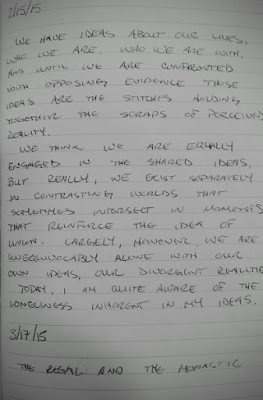 2/15/15
WE HAVE IDEAS ABOUT OUR LIVES,
WHO WE ARE, WHO WE ARE WITH,
AND UNTIL WE ARE CONFRONTED
WITH OPPOSING EVIDENCE THOSE
IDEAS ARE THE STITCHES HOLDING
TOGETHER THE SCRAPS OF PERCEIVED
REALITY.
WE THINK WE ARE EQUALLY
ENGAGED IN THE SHARED IDEAS,
BUT REALLY, WE EXIST SEPARATELY
IN CONTRASTING WORLDS THAT
SOMETIMES INTERSECT IN MOMENTS
THAT REINFORCE THE IDEA OF
UNION. LARGELY, HOWEVER, WE ARE
UNEQUIVOCABLY ALONE WITH OUR
OWN IDEAS, OUR DIVERGENT REALITIES
TODAY, I AM QUITE AWARE OF THE
LONELINESS INHERENT IN MY IDEAS.
3/17/15
THE REGAL AND THE MONASTIC